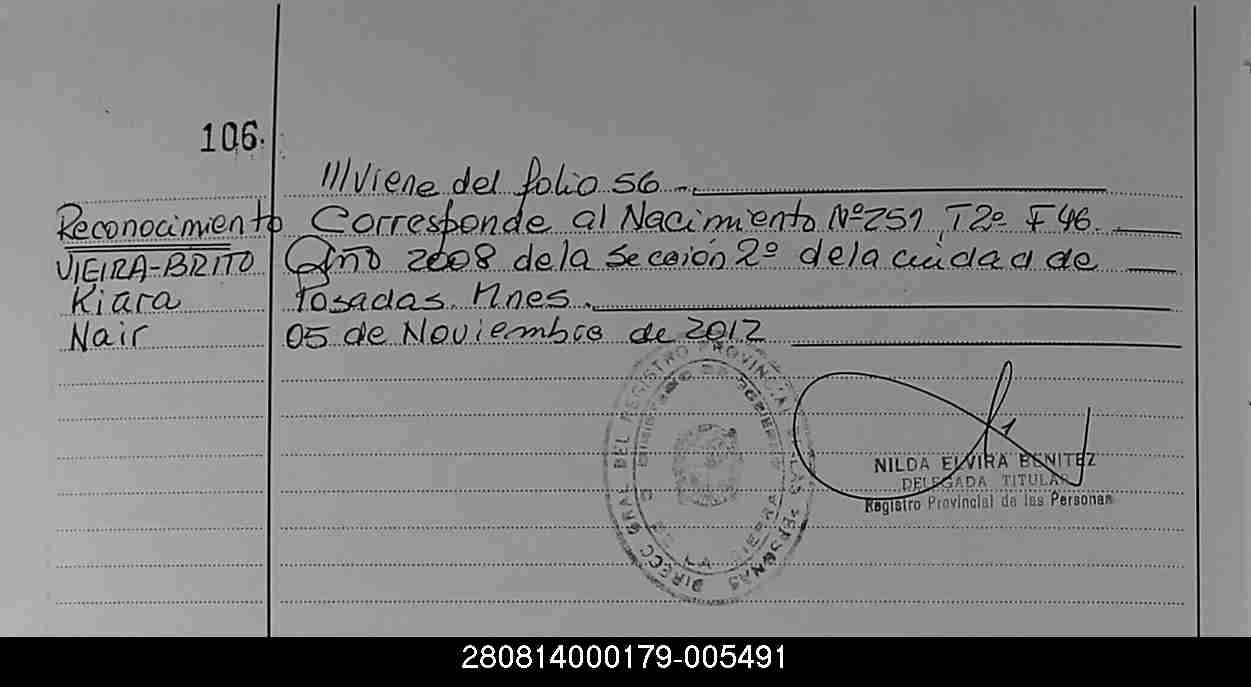 106.
///Viene del folio 56 -.
Reconocimiento Corresponde al Nacimiento Nº 251 T2º F 46.
VIEIRA-BRITO Año 2008 de la Sección 2º de la ciudad de
Kiara Posadas. Mnes.
Nair 05 de Noviembre de 2012
DIRECC GRAL DEL REGISTRO PROVINCIAL DE LAS PERSONAS
NILDA ELVIRA BENITEZ
DELEGADA TITULAR
Registro Provincial de las Personas
280814000179-005491